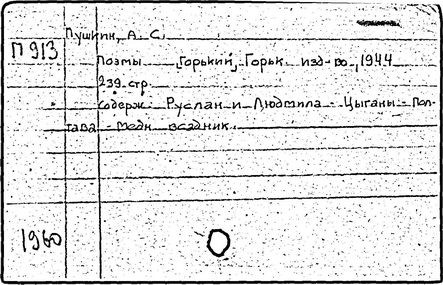 Пушкин, А. С.
П 913
Поэмы [Горький], Горьк. изд-во, 1944
239 стр.
Содерж: Руслан и Людмила - Цыганы - Пол-
тава - Медн. всадник.
1960